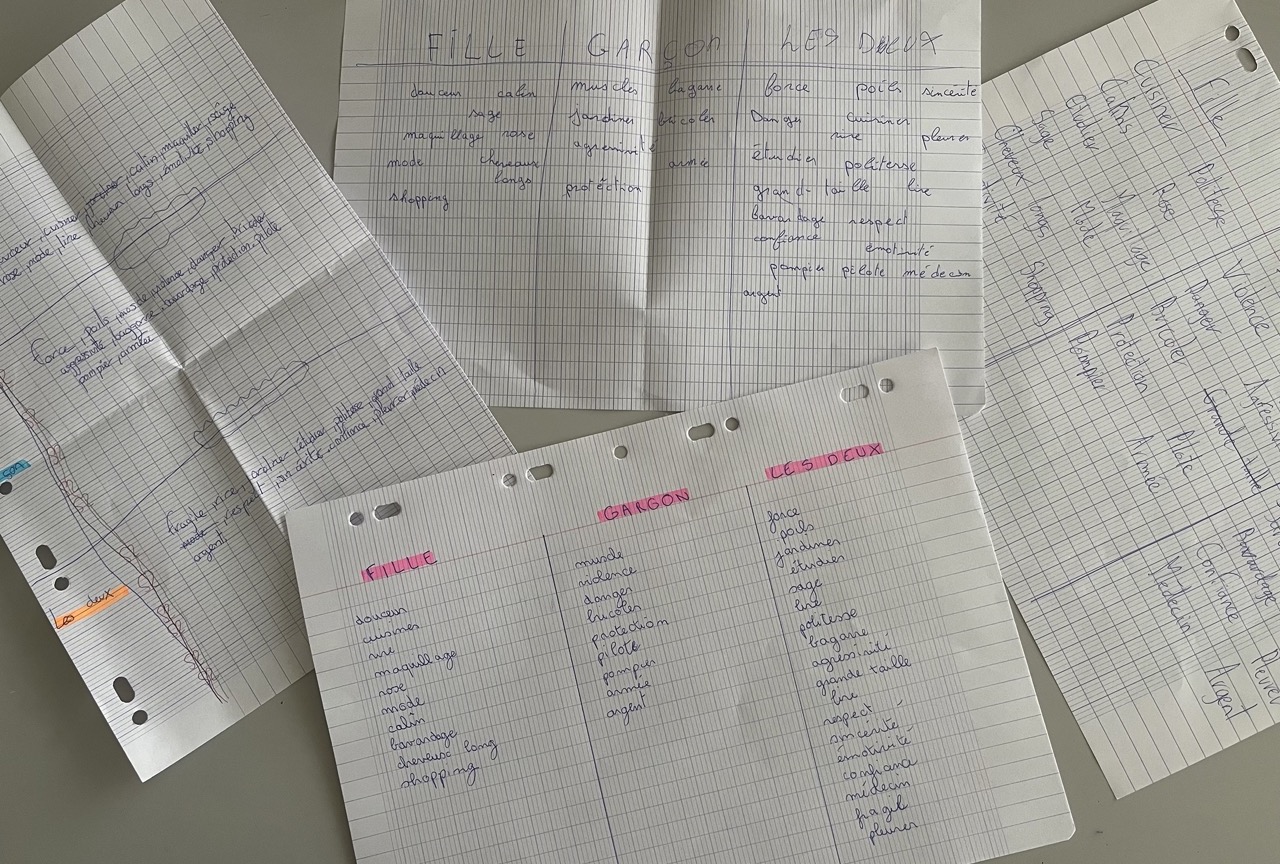 FILLE GARÇON LES DEUX
douceur calin muscles bagarre force poils sincérité
sage jardiner bricoler Danger cuisiner
maquillage rose agressivité rire pleurer
mode cheveaux armée étudier politesse
longs protection grand-taille lire
shopping bavardage respect
confiance emotivité
pompier pilote médecin
argent
FILLE
douceur
cuisiner
rire
maquillage
rose
mode
calin
bavardage
cheveux long
shopping
GARGON
muscle
violence
danger
bricoler
protection
pilote
pompier
armée
argent
LES DEUX
force
poils
jardiner
étudier
sage
lire
politesse
bagarre
agressivité
grande taille
lire
respect
sincérité
émotivité
confiance
médecin
fragile
pleurer
, calin, maquiller, saige
rose, mode, lire cheveux longs, émotivité, shopping
force, poils, danser, bricoler
agressivité, baggare, bavardage, protection, pilote
pompier, armée
fragile, rire, jardiner, étudier, politesse, grand taille
mode, respect, sincérité, confiance, pleurer, médecin
argent
Les deux
Fille
Cuisiner Politesse
Calins Rose
étudier Maquillage
Sage Mode
Cheveux longs Shopping
Violence
Danger
Bricoler
Protection Pilote
Pompier Armée
Grande taille
Bavardage Pleurer
Confiance Argent
Médecin